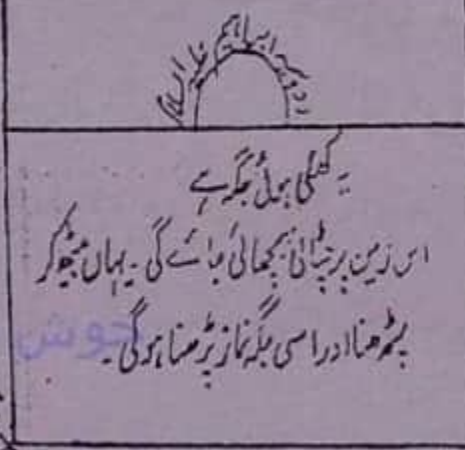 روضہ ابراہیم علیہ السلام
یہ کھلی ہوئی جگہ ہے
اس زمین پر چٹائی بچھائی جائے گی۔ یہاں بیٹھ کر
پڑھنا اور اسی جگہ نماز پڑھنا ہوگی۔